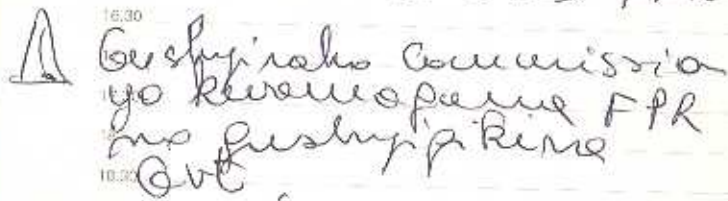 16.30
Gushyiraho Commission
yo kwamagana FPR
no gushyigikira
18.30 Gvt